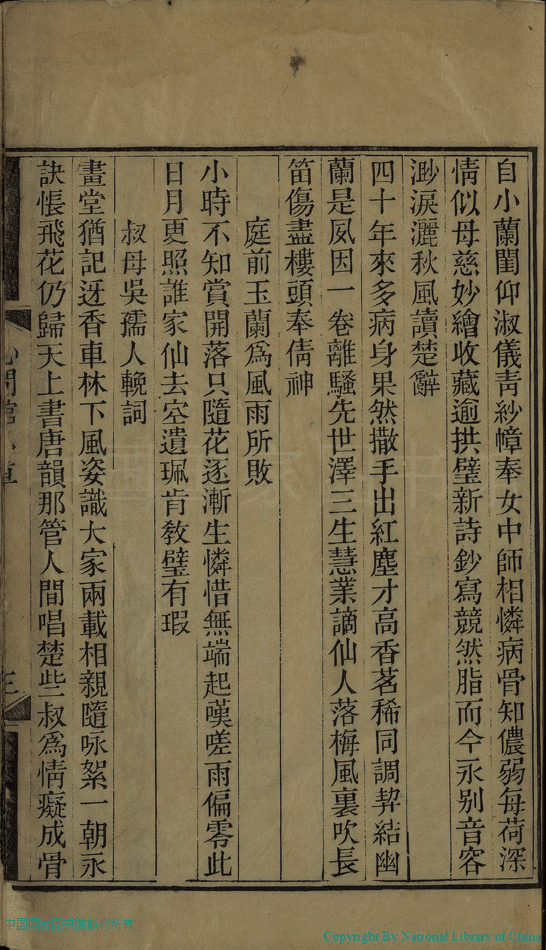 自小蘭閨仰淑儀青紗幛奉女中師相憐病骨知儂弱每荷深
情似母慈妙繪收藏逾拱璧新詩鈔寫競然脂而今永别音容
渺淚灑秋風讀楚辭
四十年來多病身果然撒手出紅塵才高香茗稀同調契結幽
蘭是夙因一卷離騷先世澤三生慧業謫仙人落梅風裏吹長
笛傷盡樓頭奉倩神
庭前玉蘭爲風雨所敗
小時不知賞開落只隨花逐漸生憐惜無端起嘆嗟雨偏零此
日月更照誰家仙去空遺珮肯教璧有瑕
叔母吳孺人輓詞
畫堂猶記迓香車林下風姿識大家兩載相親隨咏絮一朝永
訣悵飛花仍歸天上書唐韻那管人間唱楚些叔爲情癡成骨
三
中国国家图书馆
Copyright By National Library of China